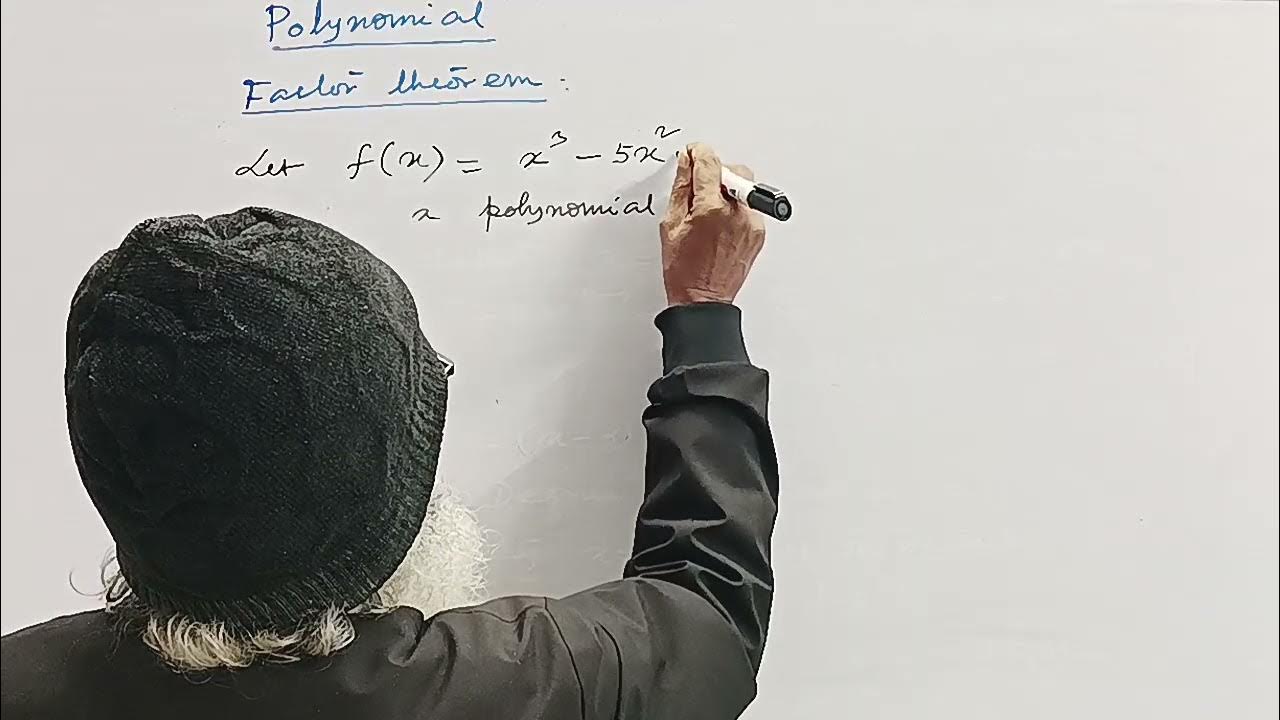 Polynomial
Factor theorem :
Let f(x) = x³ - 5x²
x polynomial